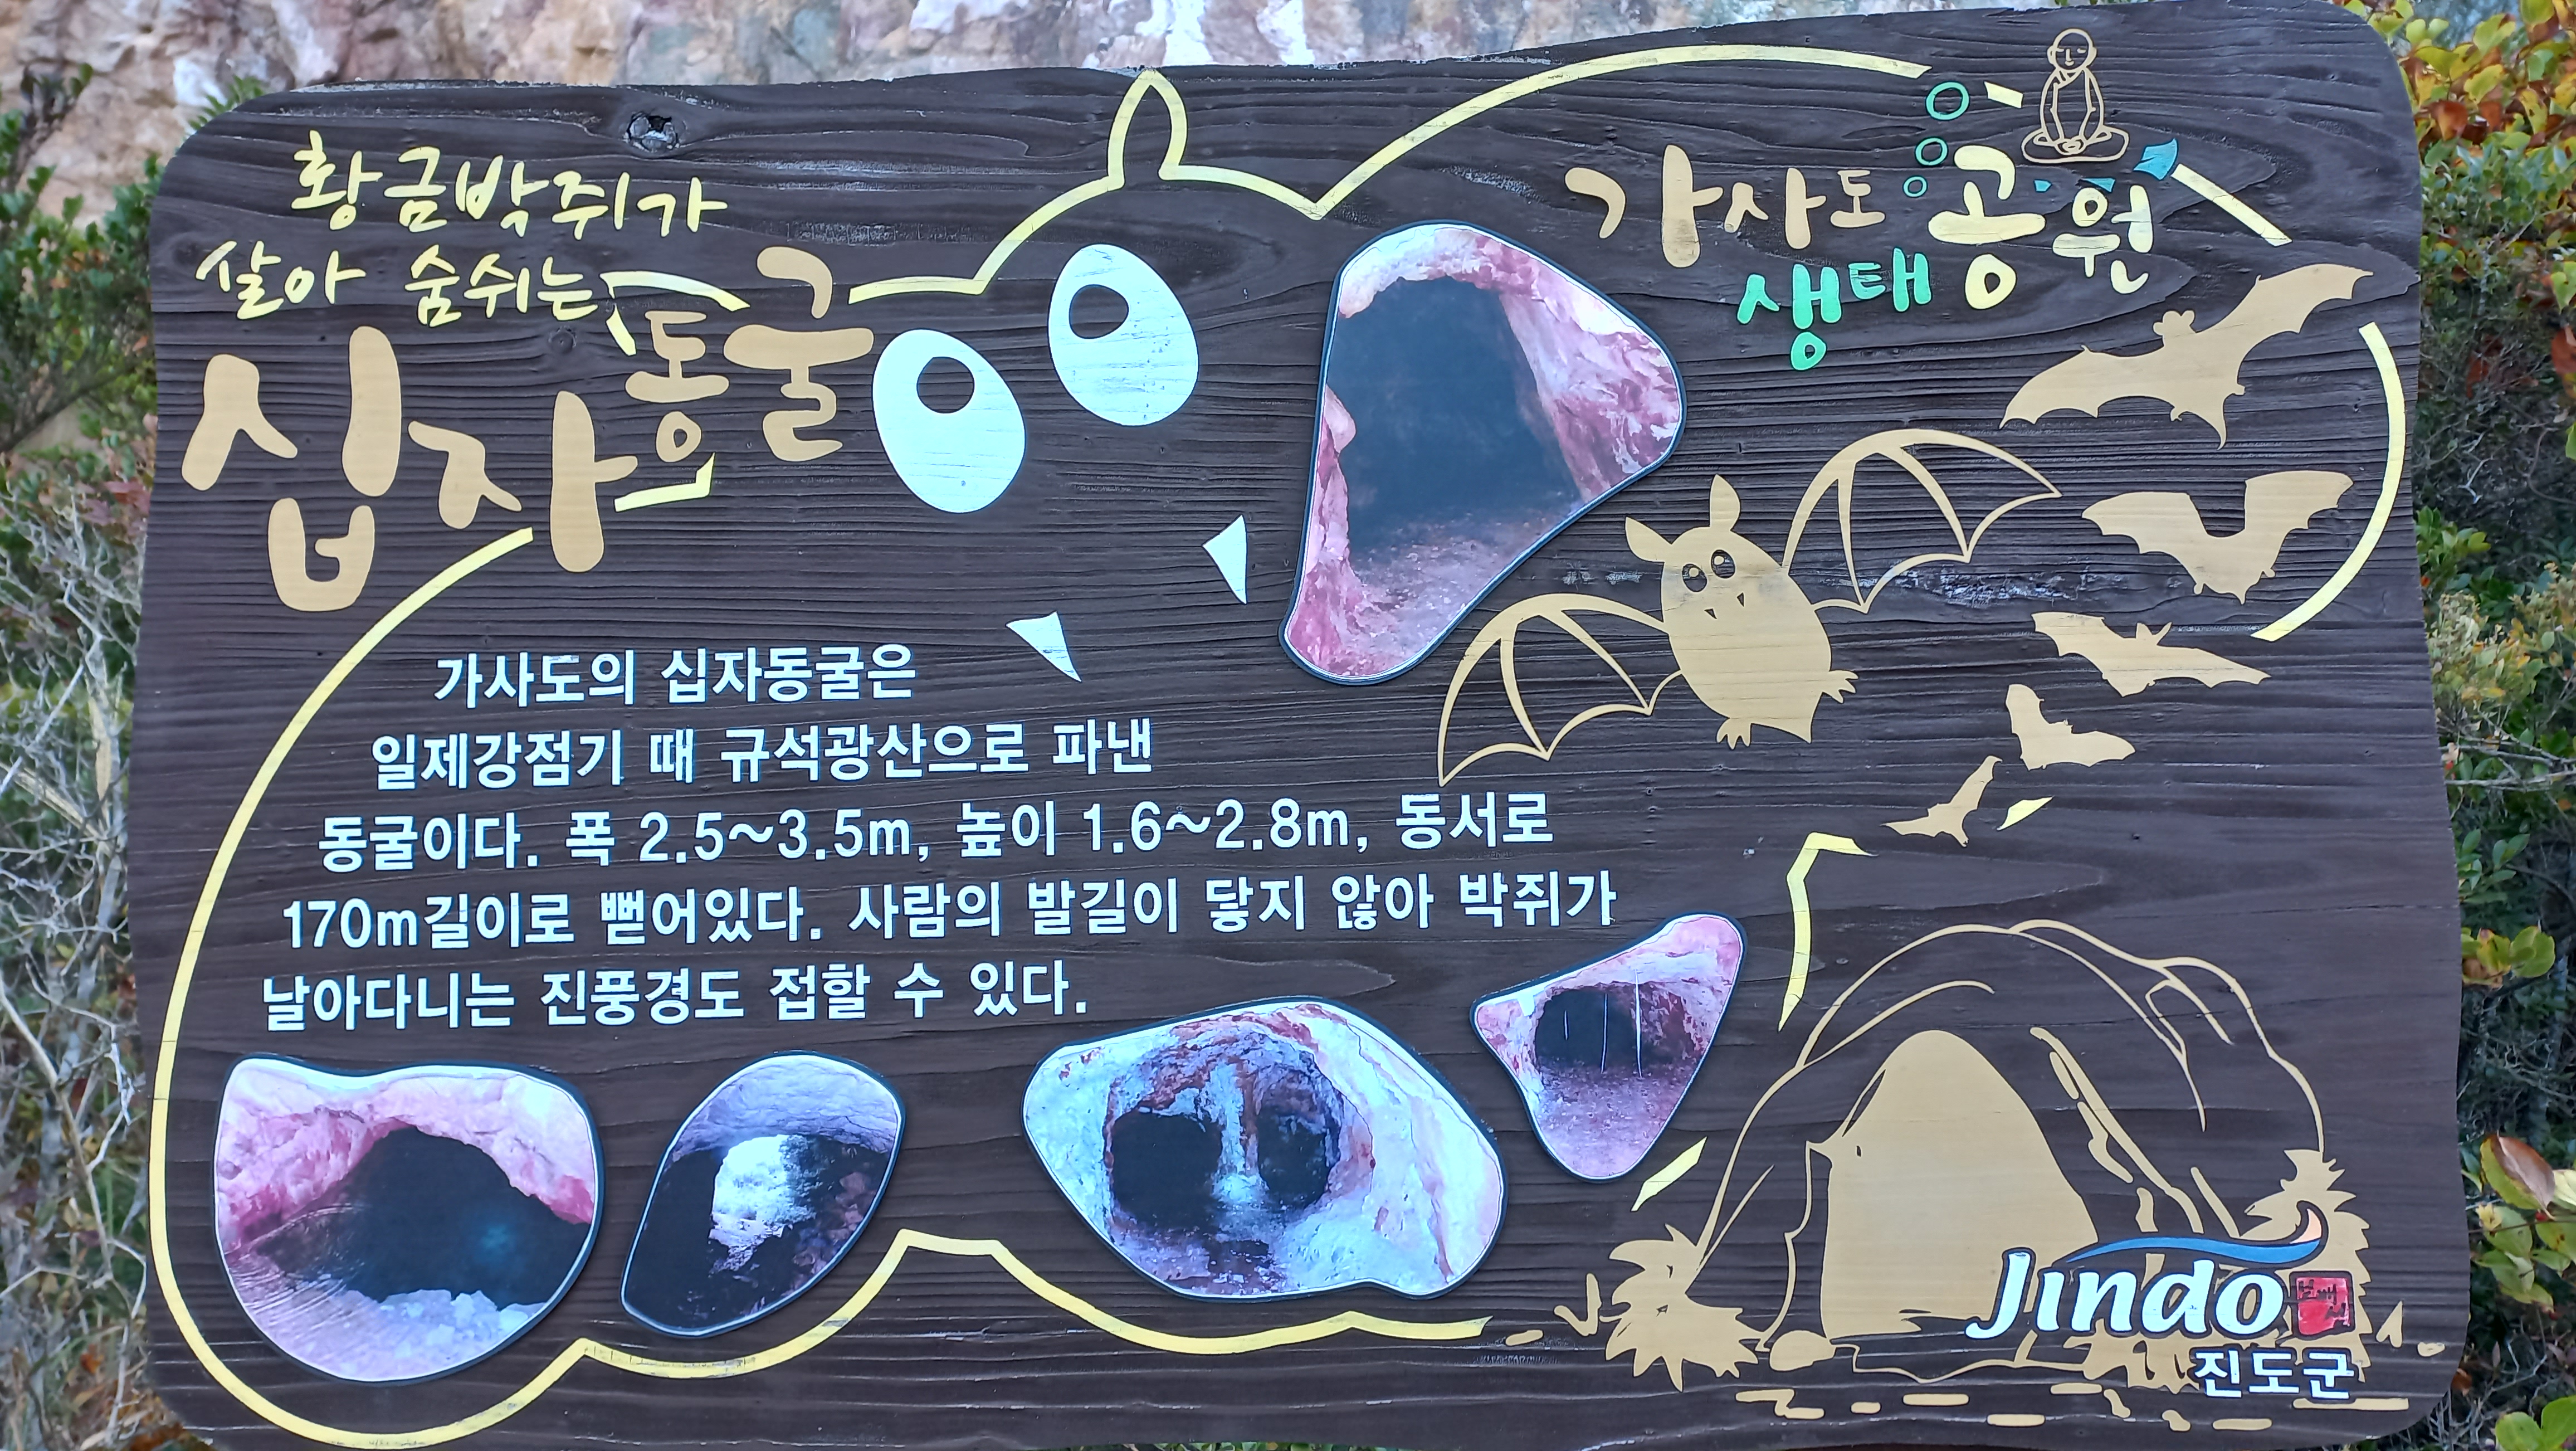 황금박쥐가
살아 숨쉬는
십자동굴
가사도
생태공원
가사도의 십자동굴은
일제강점기 때 규석광산으로 파낸
동굴이다. 폭 2.5~3.5m, 높이 1.6~2.8m, 동서로
170m길이로 뻗어있다. 사람의 발길이 닿지 않아 박쥐가
날아다니는 진풍경도 접할 수 있다.
Jindo
진도군